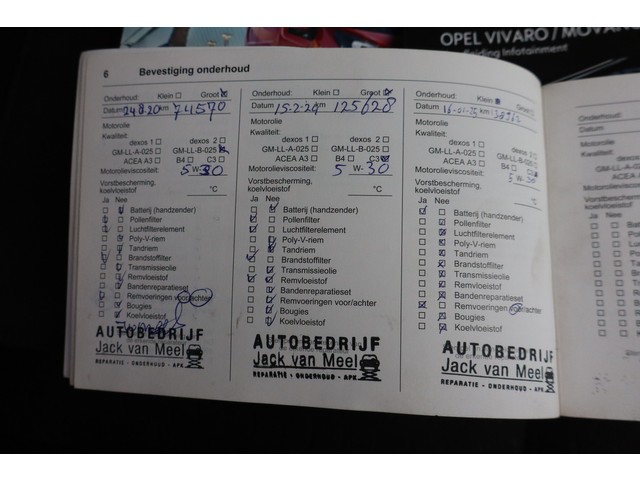 OPEL VIVARO / MOVANO
Infotainment
6 Bevestiging onderhoud
Onderhoud: Klein Groot
Datum 24820 km 74570
Motorolie
Kwaliteit:
dexos 1 dexos 2
GM-LL-A-025 GM-LL-B-025
ACEA A3 B4 C3
Motorolieviscositeit:
5 W-30
Vorstbescherming, koelvloeistof °C
Ja Nee
Batterij (handzender)
Pollenfilter
Luchtfilterelement
Poly-V-riem
Tandriem
Brandstoffilter
Transmissieolie
Remvloeistof
Bandenreparatieset
Remvoeringen voor/achter
Bougies
Koelvloeistof
AUTOBEDRIJF
Jack van Meel
REPARATIE - ONDERHOUD - APK
Onderhoud: Klein Groot
Datum 15-2-24 km 125628
Motorolie
Kwaliteit:
dexos 1 dexos 2
GM-LL-A-025 GM-LL-B-025
ACEA A3 B4 C3
Motorolieviscositeit:
5 W-30
Vorstbescherming,
koelvloeistof °C
Ja Nee
Batterij (handzender)
Pollenfilter
Luchtfilterelement
Poly-V-riem
Tandriem
Brandstoffilter
Transmissieolie
Remvloeistof
Bandenreparatieset
Remvoeringen voor/achter
Bougies
Koelvloeistof
AUTOBEDRIJF
Jack van Meel
REPARATIE - ONDERHOUD - APK
Onderhoud: Klein Groot
Datum 16-01-25 km
Motorolie
Kwaliteit:
dexos 1 dexos 2
GM-LL-A-025 GM-LL-B-025
ACEA A3 B4 C3
Motorolieviscositeit:
5 W-30
Vorstbescherming,
koelvloeistof °C
Ja Nee
Batterij (handzender)
Pollenfilter
Luchtfilterelement
Poly-V-riem
Tandriem
Brandstoffilter
Transmissieolie
Remvloeistof
Bandenreparatieset
Remvoeringen voor/achter
Bougies
Koelvloeistof
AUTOBEDRIJF
Jack van Meel
REPARATIE - ONDERHOUD - APK
Onderhoud:
Datum
Motorolie
Kwaliteit:
dexos
GM-LL-A-0
ACEA
Motorolieviscos
Vorstbescherming
koelvloeistof
Ja Nee
Batte
Polle
Luch
Poly
Tand
Bran
Tran
Rem